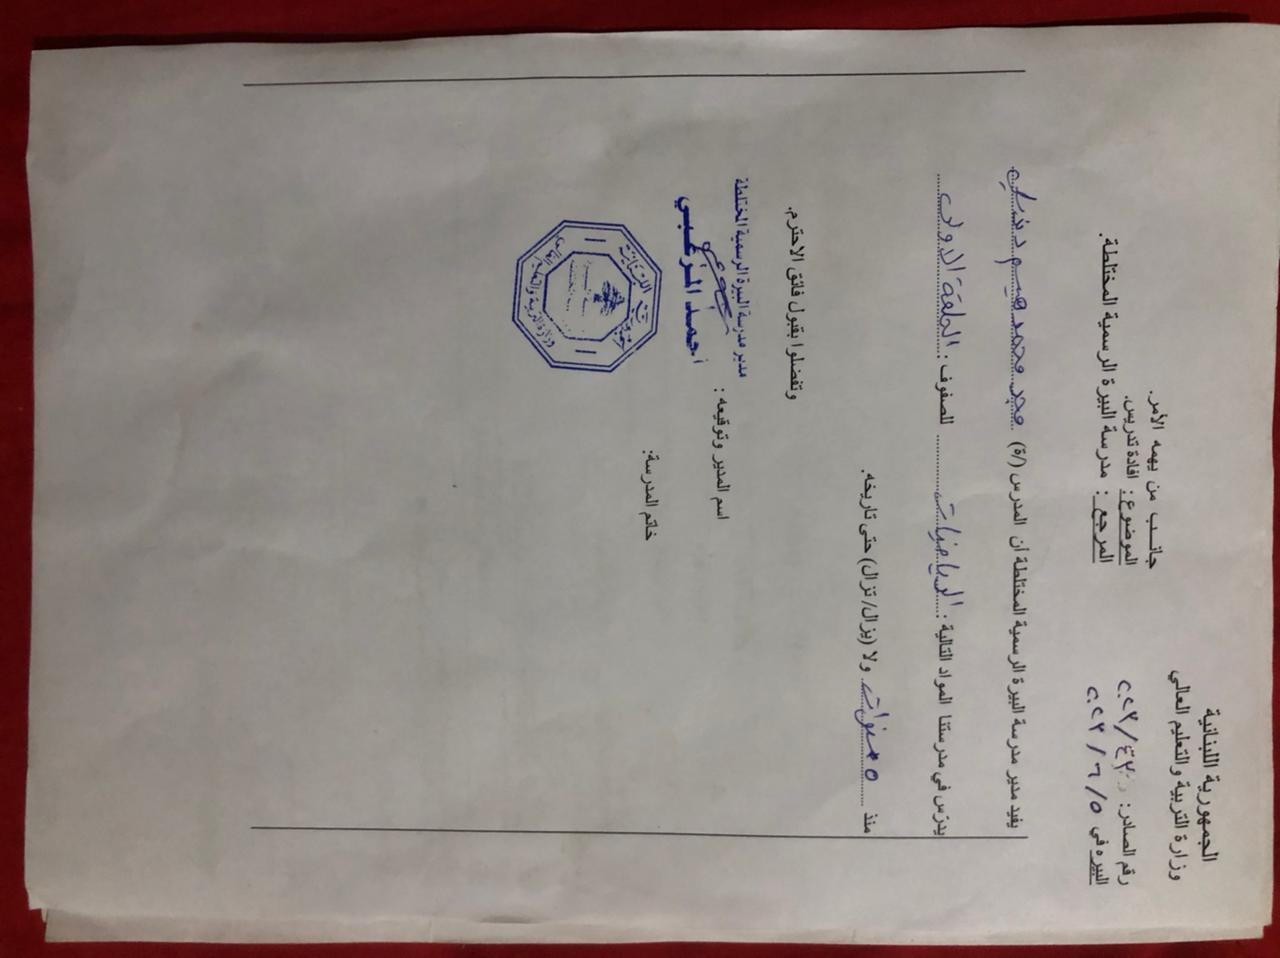 الجمهورية اللبنانية
وزارة التربية والتعليم العالي
رقم الصادر: ٢٠٢٣/٤٧
البيره في ٢٠٢٣/٦/٥
جانب من يهمه الأمر.
الموضوع: افادة تدريس.
المرجع: مدرسة البيرة الرسمية المختلطة.
يفيد مدير مدرسة البيرة الرسمية المختلطة أن المدرس (/ة) محمد
يدرّس في مدرستنا المواد التالية: الرياضيات للصفوف: الحلقة الاولى
منذ ٥ سنوات ولا (يزال/ تزال) حتى تاريخه.
وتفضلوا بقبول فائق الاحترام.
اسم المدير وتوقيعه:
مدير مدرسة البيرة الرسمية المختلطة
أحمد المرعبي
خاتم المدرسة:
وزارة التربية والتعليم العالي